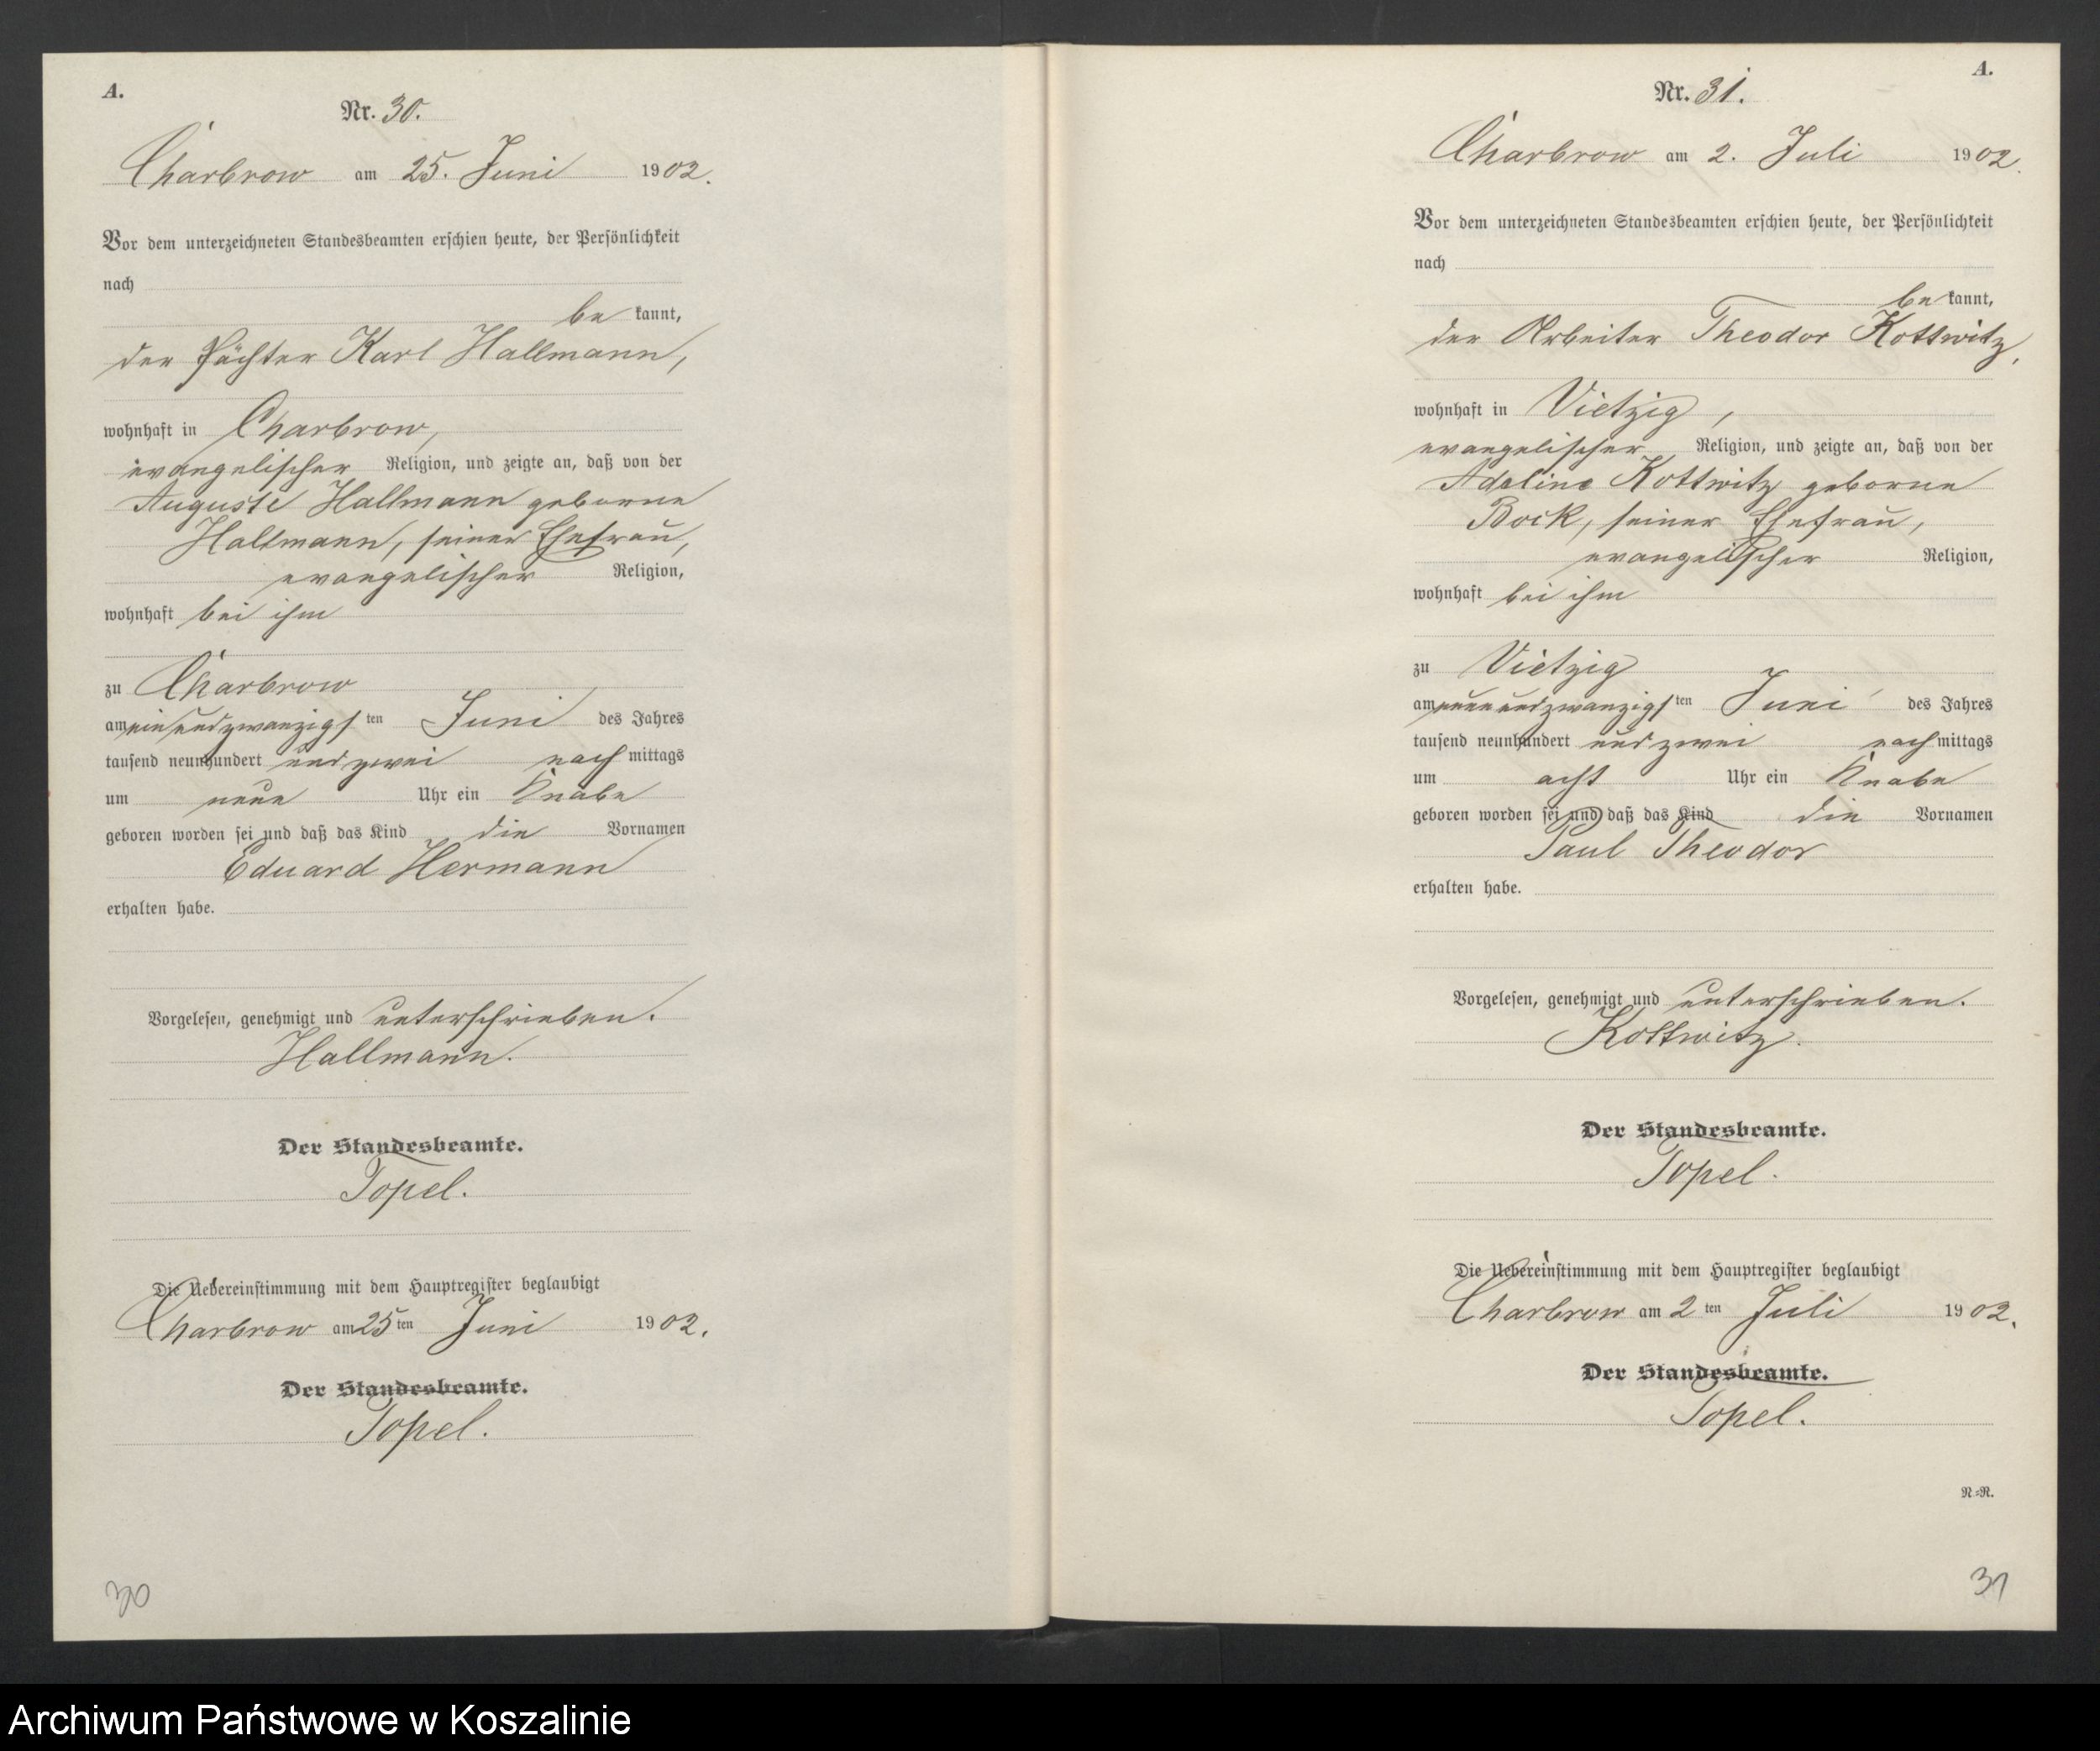 A.
Nr. 30.
Charbrow am 25. Juni 1902.
Vor dem unterzeichneten Standesbeamten erschien heute, der Persönlichkeit
nach
be kannt,
der Pächter Karl Hallmann,
wohnhaft in Charbrow,
evangelischer Religion, und zeigte an, daß von der
Auguste Hallmann geborne
Hallmann, seiner Ehefrau,
evangelischer Religion,
wohnhaft bei ihm
zu Charbrow
am einundzwanzigsten Juni des Jahres
tausend neunhundert und zwei nachmittags
um neun Uhr ein Knabe
geboren worden sei und daß das Kind die Vornamen
Eduard Hermann
erhalten habe.
Vorgelesen, genehmigt und unterschrieben.
Hallmann.
Der Standesbeamte.
Topel.
Die Uebereinstimmung mit dem Hauptregister beglaubigt
Charbrow am 25ten Juni 1902.
Der Standesbeamte.
Topel.
30
A.
Nr. 31.
Charbrow am 2. Juli 1902.
Vor dem unterzeichneten Standesbeamten erschien heute, der Persönlichkeit
nach
be kannt,
der Arbeiter Theodor Kottwitz,
wohnhaft in Vietzig,
evangelischer Religion, und zeigte an, daß von der
Adeline Kottwitz geborne
Bock, seiner Ehefrau,
evangelischer Religion,
wohnhaft bei ihm
zu Vietzig
am neunundzwanzigsten Juni des Jahres
tausend neunhundert und zwei nachmittags
um acht Uhr ein Knabe
geboren worden sei und daß das Kind die Vornamen
Paul Theodor
erhalten habe.
Vorgelesen, genehmigt und unterschrieben.
Kottwitz.
Der Standesbeamte.
Topel.
Die Uebereinstimmung mit dem Hauptregister beglaubigt
Charbrow am 2ten Juli 1902.
Der Standesbeamte.
Topel.
N=N.
31
Archiwum Państwowe w Koszalinie